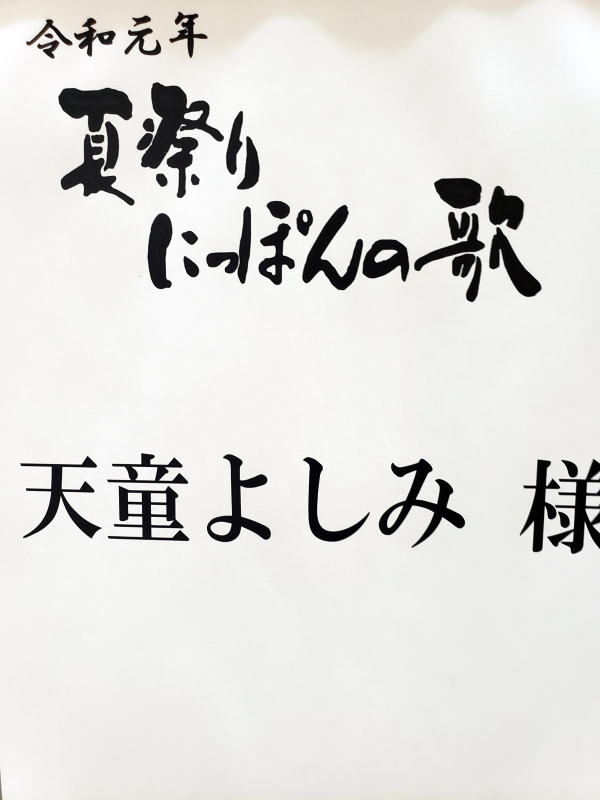 令和元年
夏祭り
にっぽんの歌
天童よしみ 様